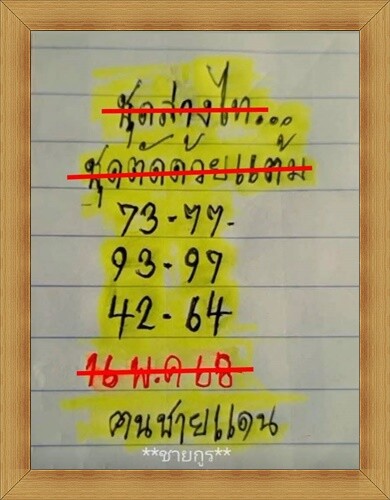 ชุดสร่างไท...
ชุดตัดด้วยแต้ม
73-77-
93-97
42-64
16 พ.ค 68
คนชายแดน
**ชายกูร**